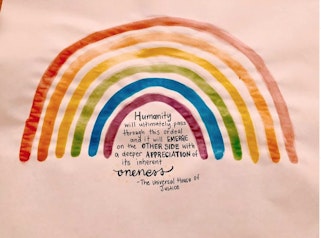 Humanity
will ultimately pass
through this ordeal
and it will EMERGE
on the OTHER SIDE with
a deeper APPRECIATION of
its inherent
oneness
-The Universal House of
Justice